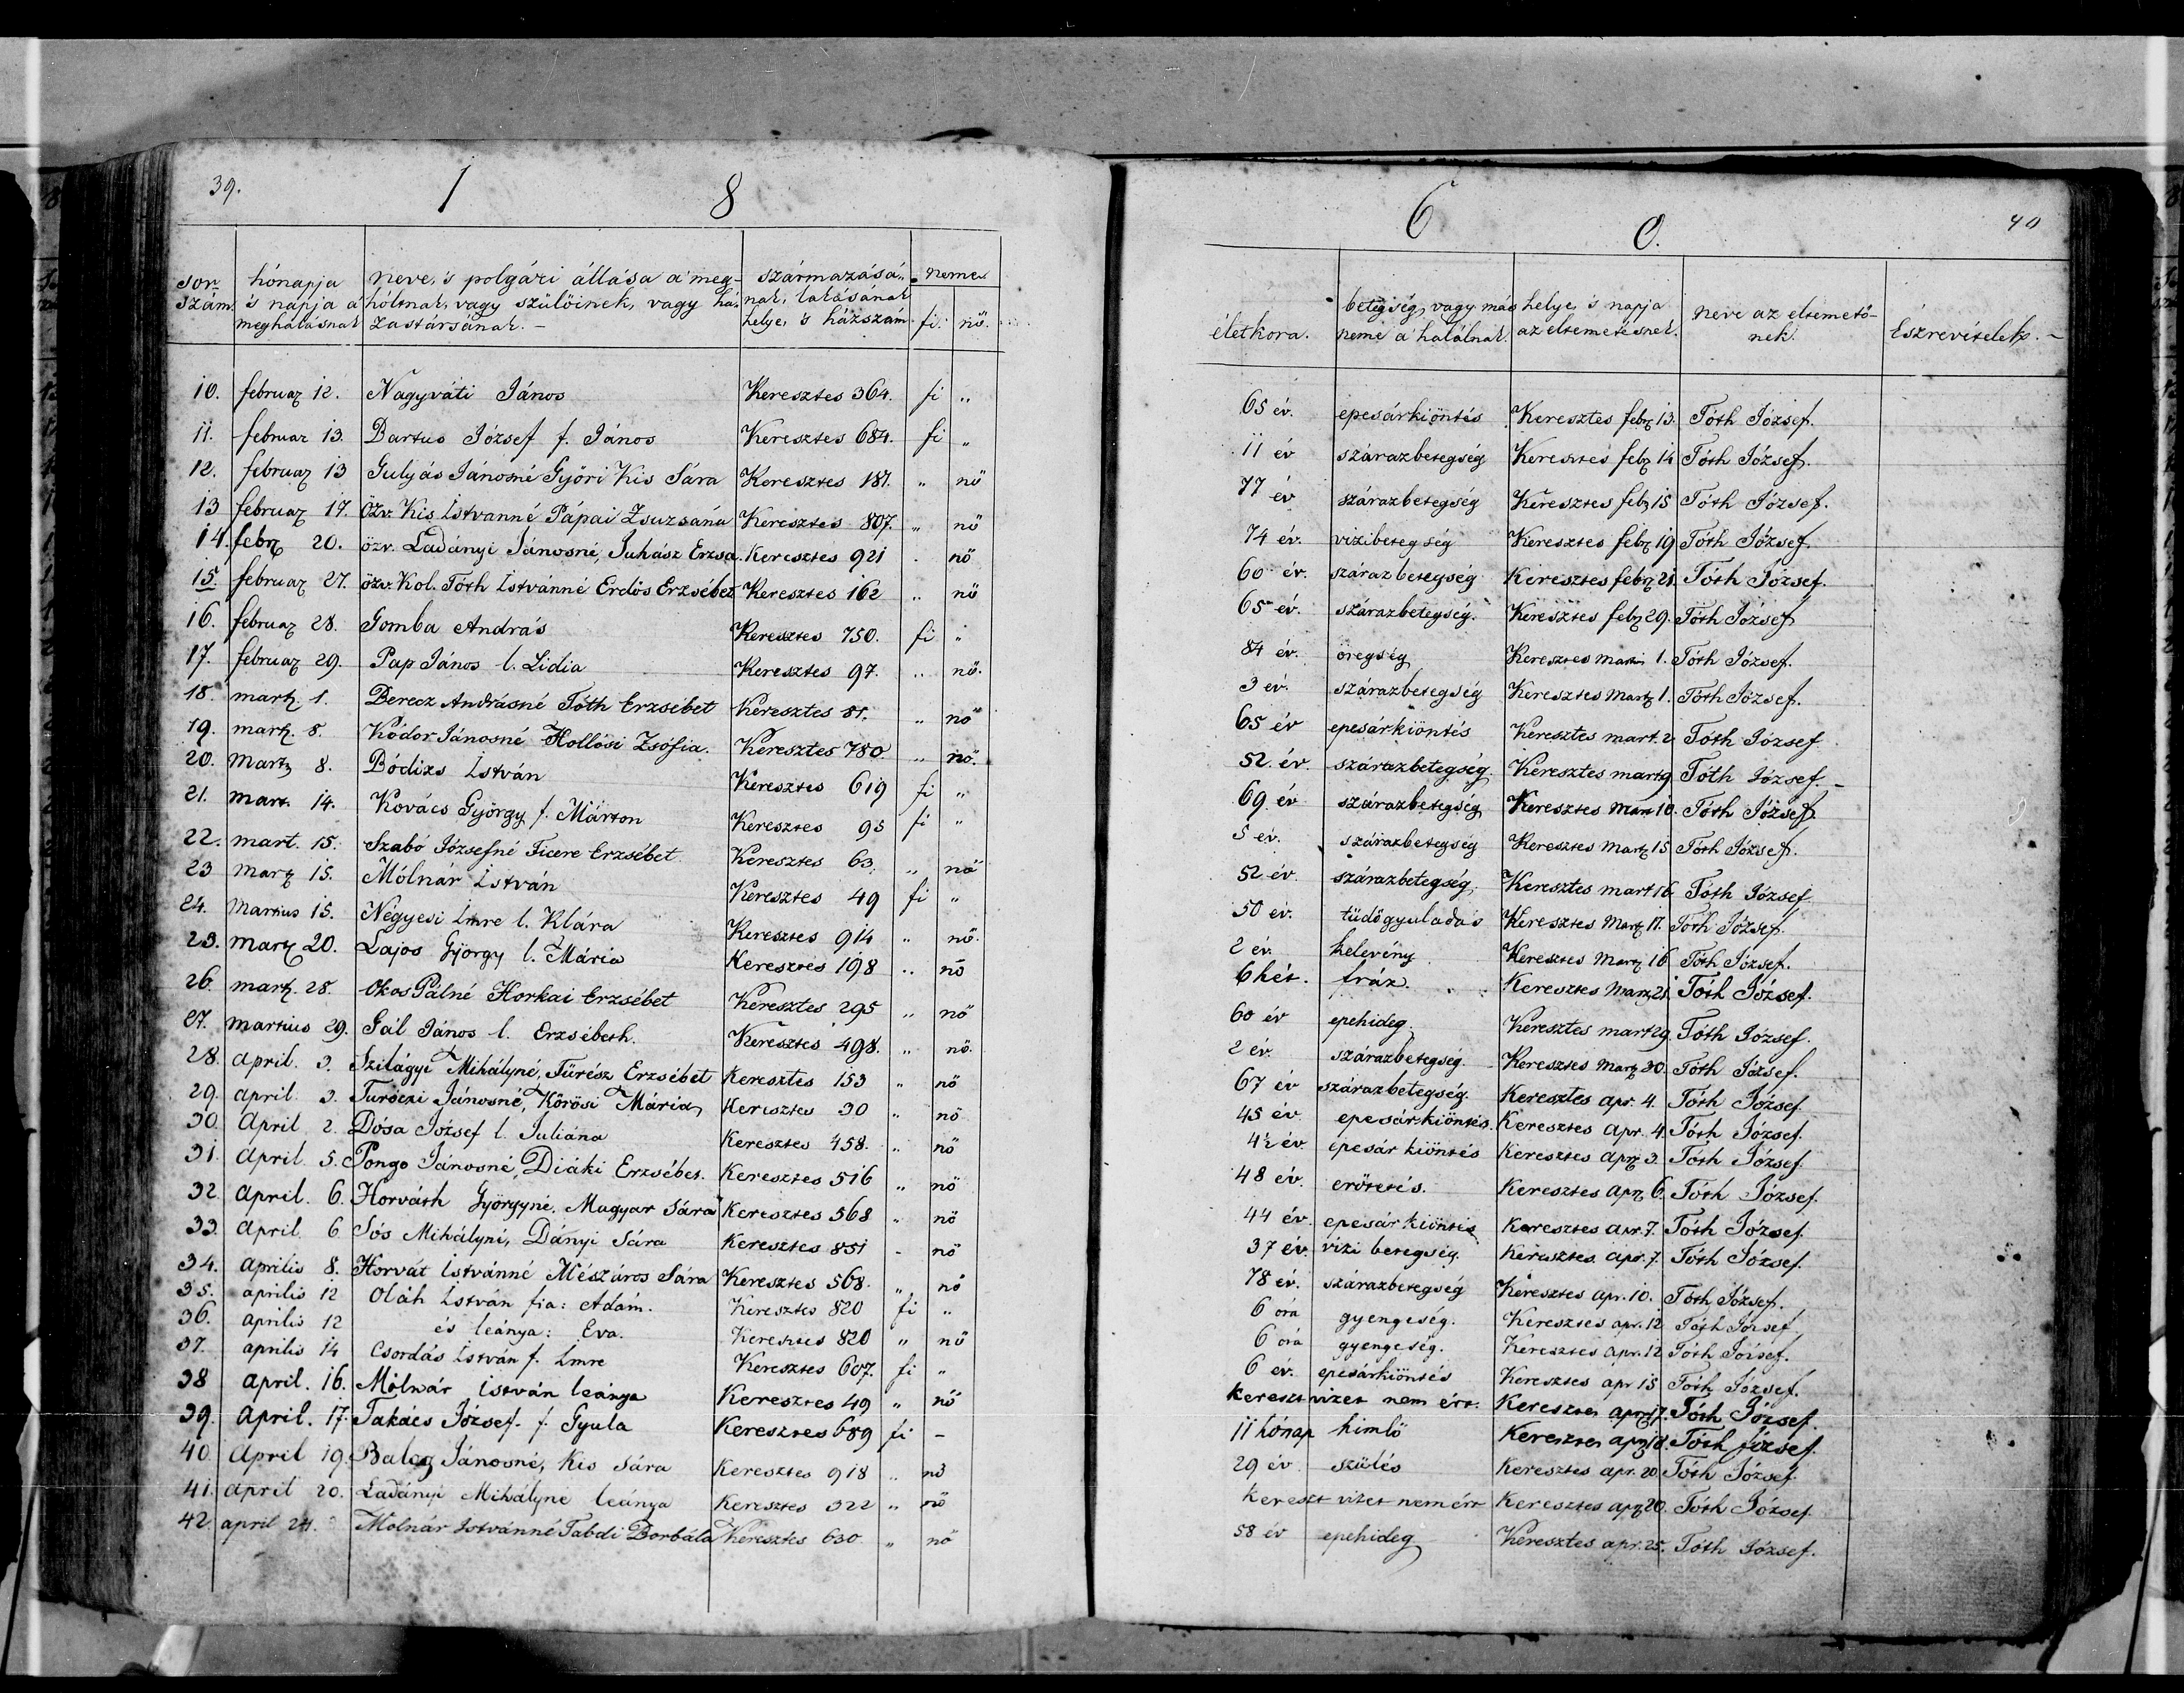 39.
1 8
sor szám. hónapja 's napja a' meghalásnak neve, 's polgári állása a' meghóltnak, vagy szülőinek, vagy házastársának. – származásának, lakásának helye, 's házszám neme
fi. nő.
10. februar 12. Nagyváti János Keresztes 364. fi „
11. februar 13. Bartus József f. János Keresztes 684. fi „
12. februar 13 Gulyás Jánosné Győri Kis Sára Keresztes 181. „ nő
13 februar 17. Özv. Kis Istvanné Pápai Zsuzsána Keresztes 807. „ nő
14. febr 20. özv. Ladányi Jánosné, Juhász Erzsa. Keresztes 921 . nő
15. februar 27. özv. Kol. Tóth Istvánné Erdős Erzsébet Keresztes 162 „ nő
16. februar 28. Gomba András Keresztes 750. fi „
17. februar 29. Pap János l. Lidia Keresztes 97. „ nő.
18. mart. 1. Berecz Andrásné Tóth Erzsébet Keresztes 81. „ nő
19. mart. 8. Kódor Jánosné Hollósi Zsófia. Keresztes 780. „ nő.
20. Mart 8. Bódizs István Keresztes 619 fi „
21. Mart. 14. Kovács György f. Márton Keresztes 95 fi „
22. mart. 15. Szabó Józsefné Ficere Erzsébet Keresztes 63, „ nő
23 mart 15. Mólnár István Keresztes 49 fi „
24. Martius 15. Négyesi Imre l. Klára Keresztes 914 „ nő.
23. Mart 20. Lajos György l. Mária Keresztes 198 „ nő
26. mart. 28. Okos Pálné Horkai Erzsébet Keresztes 295 „ nő
27. Martius 29. Gál János l. Erzsébeth. Keresztes 498. „ nő.
28. April. 3. Szilágyi Mihályné, Fürész Erzsébet Keresztes 153 „ nő
29. April. 3. Turóczi Jánosné, Kőrösi Mária Keresztes 30 „ nő
30. April 2. Dósa József l. Juliána Keresztes 458. „ nő
31. April. 5. Pongo Jánosné, Diáki Erzsébet. Keresztes 516 „ nő
32. April. 6. Horváth Györgyné. Magyar Sára Keresztes 568 „ nő
33. April. 6 Sós Mihályné, Dányi Sára Keresztes 851 - nő
34. Aprilis 8. Horvát Istvánné Mészáros Sára Keresztes 568. „ nő
35. aprilis 12 Oláh István fia: Adám. Keresztes 820 fi „
36. aprilis 12 és leánya: Eva. Keresztes 820 „ nő
37. aprilis 14 Csordás István f. Imre Keresztes 607. fi „
38 April. 16. Mólnár István leánya Keresztes 49 „ nő
39. April. 17. Takács József f. Gyula Keresztes 689 fi –
40. April 19. Jánosné, Kis Sára Keresztes 918 „ nő
41. April 20. Ladányi Mihályné leánya Keresztes 322 „ nő
42. april 24. Molnár Istvánné Tabdi Borbála Keresztes 630. „ nő
6 0.
40
életkora. betegség, vagy más neme a' halálnak. helye, 's napja az eltemetésnek. neve az eltemetőnek. Észrevételek. –
65 év. epesárkiöntés Keresztes febr 13. Tóth József.
11 év szárazbetegség Keresztes feb 14 Tóth József.
77 év szárazbetegség Keresztes feb 15 Tóth József.
74 év. vizibetegség Keresztes febr 19 Tóth József.
60 év. szárazbetegség Keresztes febr 21. Tóth József.
65 év. szárazbetegség. Keresztes feb 29. Tóth József
84 év. öregség Keresztes 1. Tóth József.
3 év. szárazbetegség Keresztes Mart 1. Tóth József.
65 év epesárkiöntés Keresztes mart. 2 Tóth József
52. év. szárazbetegség. Keresztes mart 9 Tóth József. –
69. év szárazbetegség Keresztes Mart 10. Tóth József.
5 év. szárazbetegség Keresztes Mart 15 Tóth József.
52 év. szárazbetegség. Keresztes mart 16 Tóth József
50 év. tüdőgyuladás Keresztes Mart 17. Tóth József.
2 év. kelevény Keresztes Mart 16 Tóth József.
6 hét. fráz. Keresztes Mart 21. Tóth József.
60 év epehideg. Keresztes mart 29. Tóth József.
2 év. szárazbetegség. Keresztes Mart 30. Tóth József.
67 év szárazbetegség. Keresztes apr. 4. Tóth József
45 év epesárkiöntés. Keresztes Apr. 4. Tóth József.
4½ év epesár kiöntés Keresztes Apr 3. Tóth József.
48 év. erőtetés. Keresztes Apr 6. Tóth József.
44 év. epesár kiöntés Keresztes Apr. 7. Tóth József.
37 év. vizi betegség. Keresztes. Apr. 7. Tóth József.
78 év. szárazbetegség Keresztes apr. 10. Tóth József.
6 óra gyengeség. Keresztes apr. 12 Tóth József
6 óra gyengeség. Keresztes Apr. 12 Tóth József.
6 év. epesárkiöntés Keresztes apr 15 Tóth József.
kereszt vizet nem ért. Keresztes Apr 17. Tóth József.
11 hónap himlő Keresztes apr 18. Tóth József.
29 év szülés Keresztes Apr. 20. Tóth József.
kereszt vizet nem ért Keresztes Apr 20. Tóth József.
58 év epehideg Keresztes apr. 25. Tóth József.